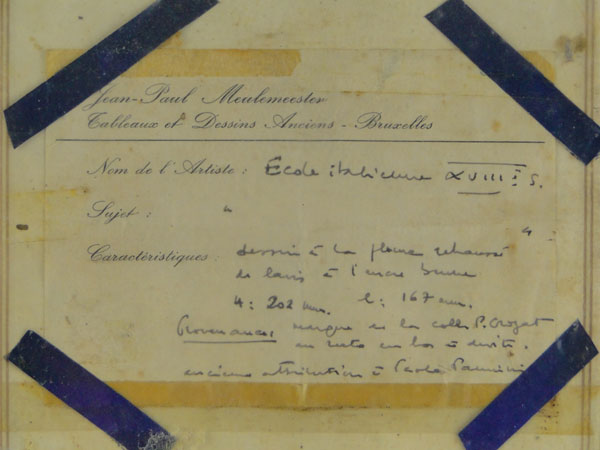 Jean-Paul Meulemeester
Tableaux et Dessins Anciens - Bruxelles
Nom de l'Artiste : École italienne XVIII e S.
Sujet : "
"
Caractéristiques : dessin à la plume rehaussé
de lavis à l'encre brune
h : 202 mm. l : 167 mm.
Provenance : marque de la coll. P. Crozat
au recto en bas à droite.
ancienne attribution à Paolo